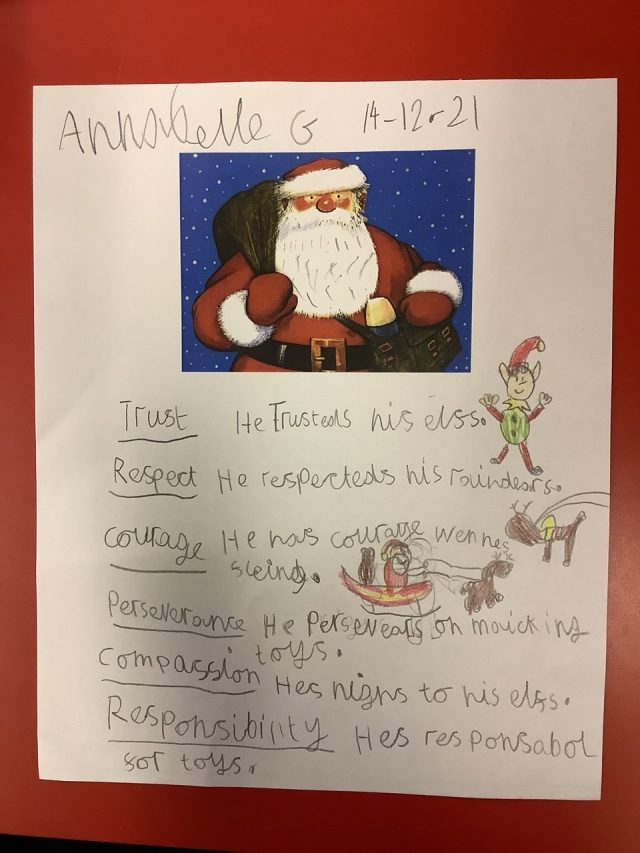 Annabelle G 14-12-21
Trust He Trusteds his elfs.
Respect He respecteds his raindears.
courage He has courage wen hes
sleing.
Perseverance He Persevears on maicking
toys.
Compassion Hes nighs to his elfs.
Responsibility Hes responsabol
for toys.